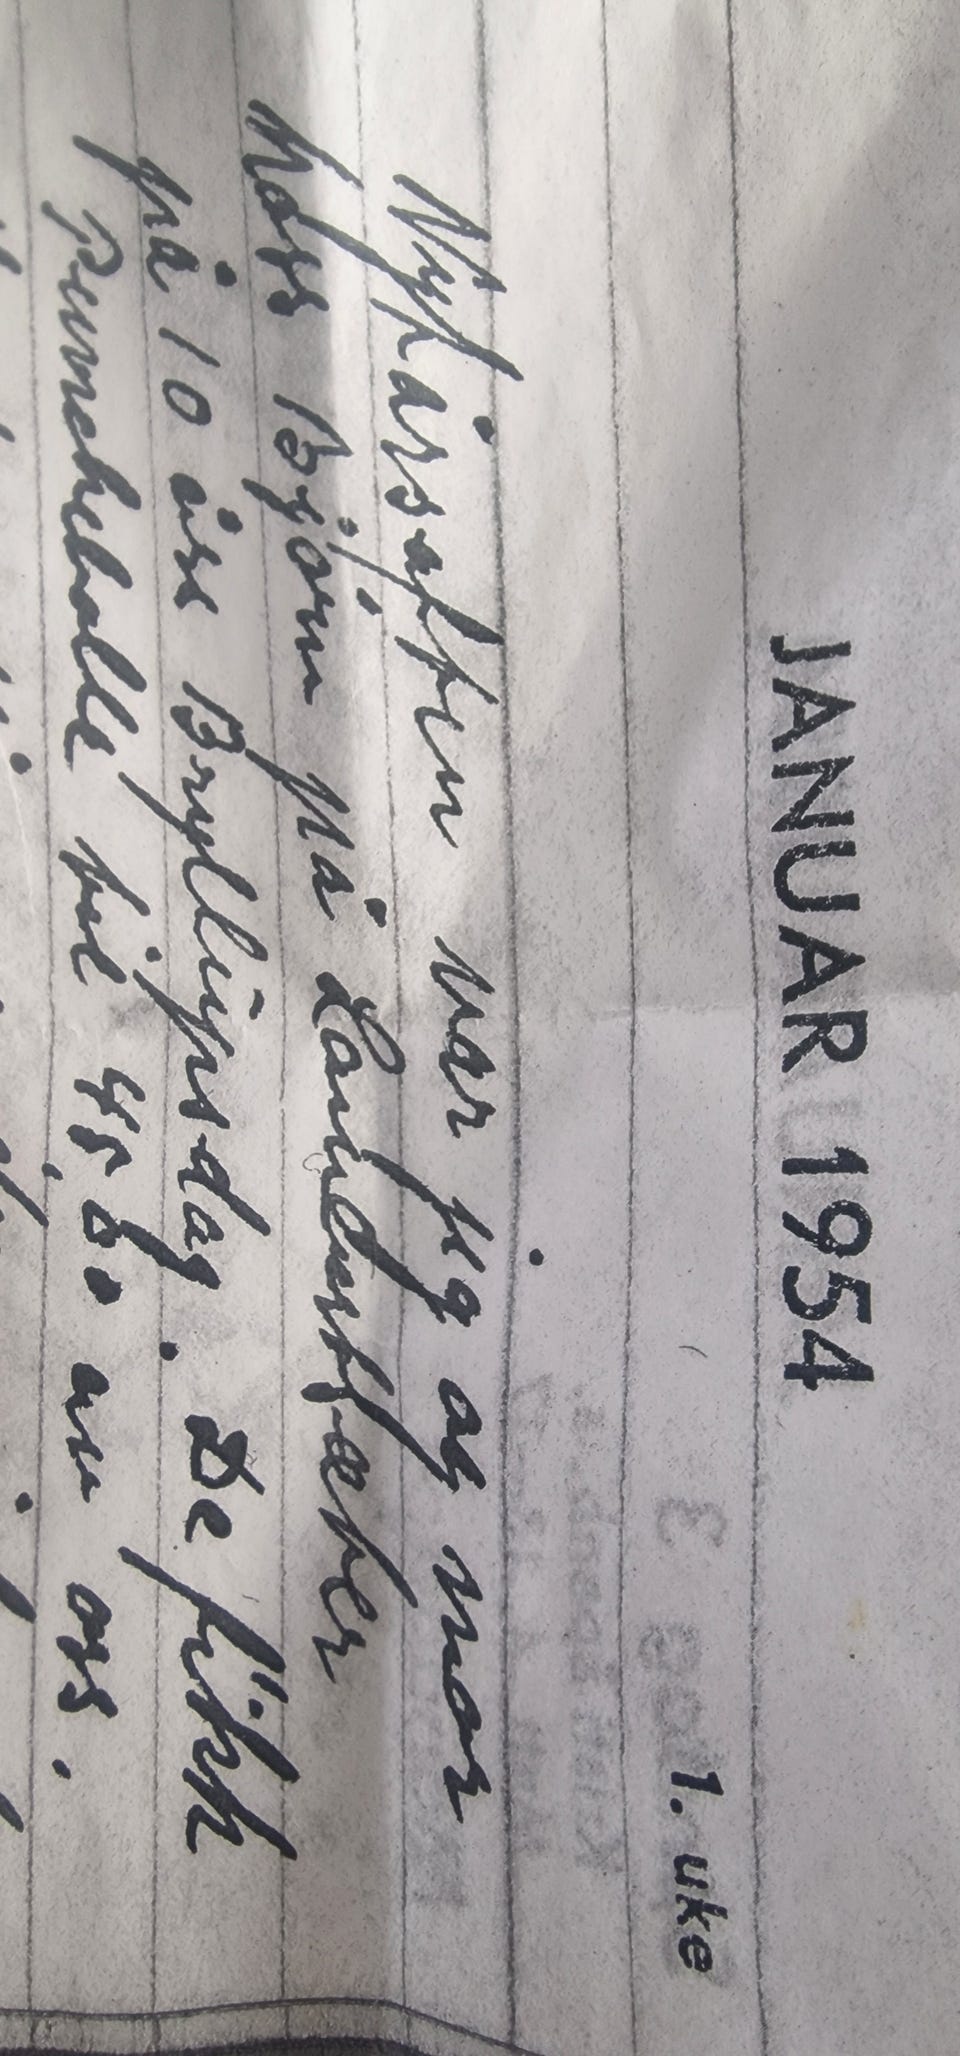 JANUAR 1954
1. uke
Nyttårsaften var jeg og mor
hoss Bjørn på Landmstræter
på 10 års Bryllüpsdag. De fükk
Punchebolle til 45,80 av oss.